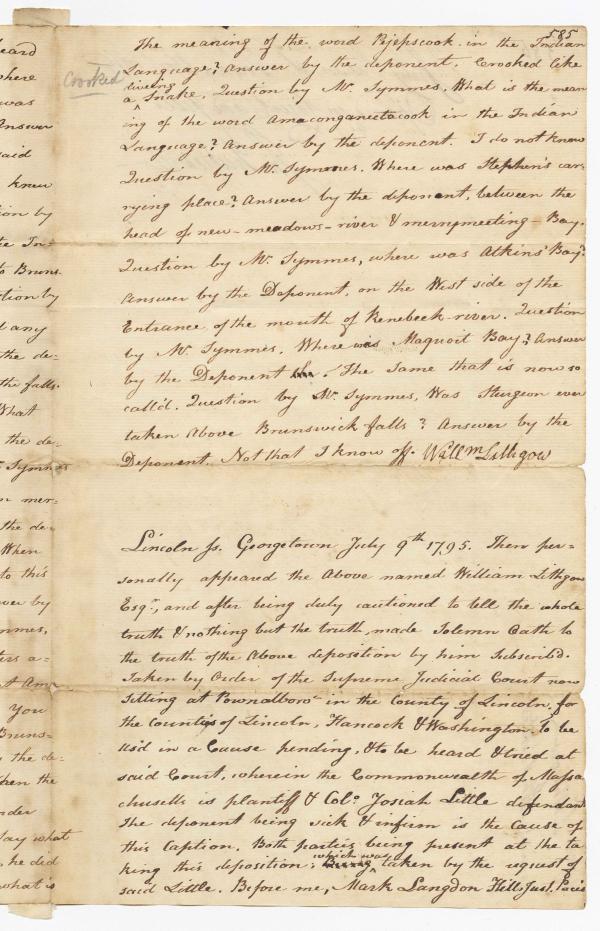 585
The meaning of the word Pejepscook in the Indian
Language? Answer by the deponent. Crooked like
Crooked
diveing
a ^ Snake. Question by Mr. Symmes. What is the mean
ing of the word Amaconganeetacook in the Indian
Language? Answer by the deponent. I do not know
Question by Mr. Symmes. Where was Stephen's car-
rying place? Answer by the deponent, between the
head of new-meadows-river & merrymeeting-Bay.
Question by Mr. Symmes, where was Atkins' Bay?
Answer by the Deponent, on the West side of the
Entrance of the mouth of Kenebeck-river. Question
by Mr. Symmes. Where was Maquoit Bay? Answer
by the Deponent. The Same that is now so
call'd. Question by Mr. Symmes, Was Sturgeon ever
taken Above Brunswick falls? Answer by the
Deponent. Not that I know off. Willm Lithgow
Lincoln Ss. Georgetown July 9th 1795. Then per-
sonally appeared the Above named William Lithgow
Esqr., and after being duly cautioned to tell the whole
truth & nothing but the truth, made Solemn Oath to
the truth of the Above deposition by him Subscrib'd.
Taken by Order of the Supreme Judicial Court now
Sitting at Pownalboro' in the County of Lincoln, for
the Counties of Lincoln, Hancock & Washington, to be
us'd in a Cause pending, & to be heard & tried at
said Court, wherein the Commonwealth of Massa
chusetts is plantiff & Colo. Josiah Little defendant
The deponent being sick & infirm is the Cause of
this Caption. Both parties being present at the ta
king this deposition, Being
which was
^ taken by the request of
said Little. Before me, Mark Langdon Hill, Just. Pacis
heard
where
was
Answer
said
knew
tion by
the In-
to Bruns
tion by
d any
the de-
the falls.
What
the de-
Symmes
mer-
the de-
When
to this
wer by
mmes,
ters a-
t Ama
You
Bruns-
the de-
hen the
nder
Say what
he did
what is